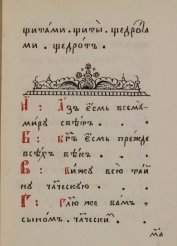 щитами. щиты. щедрота
ми. щедротъ.
А : Азъ есмь всему
миру свѣтъ .
Б : Бг҃ъ есмь прежде
всѣхъ вѣкъ .
В : вижу всю тай
ну чл҃ческую .
Г : Гл҃ю же вамъ
сыномъ . чл҃чески
м҃а